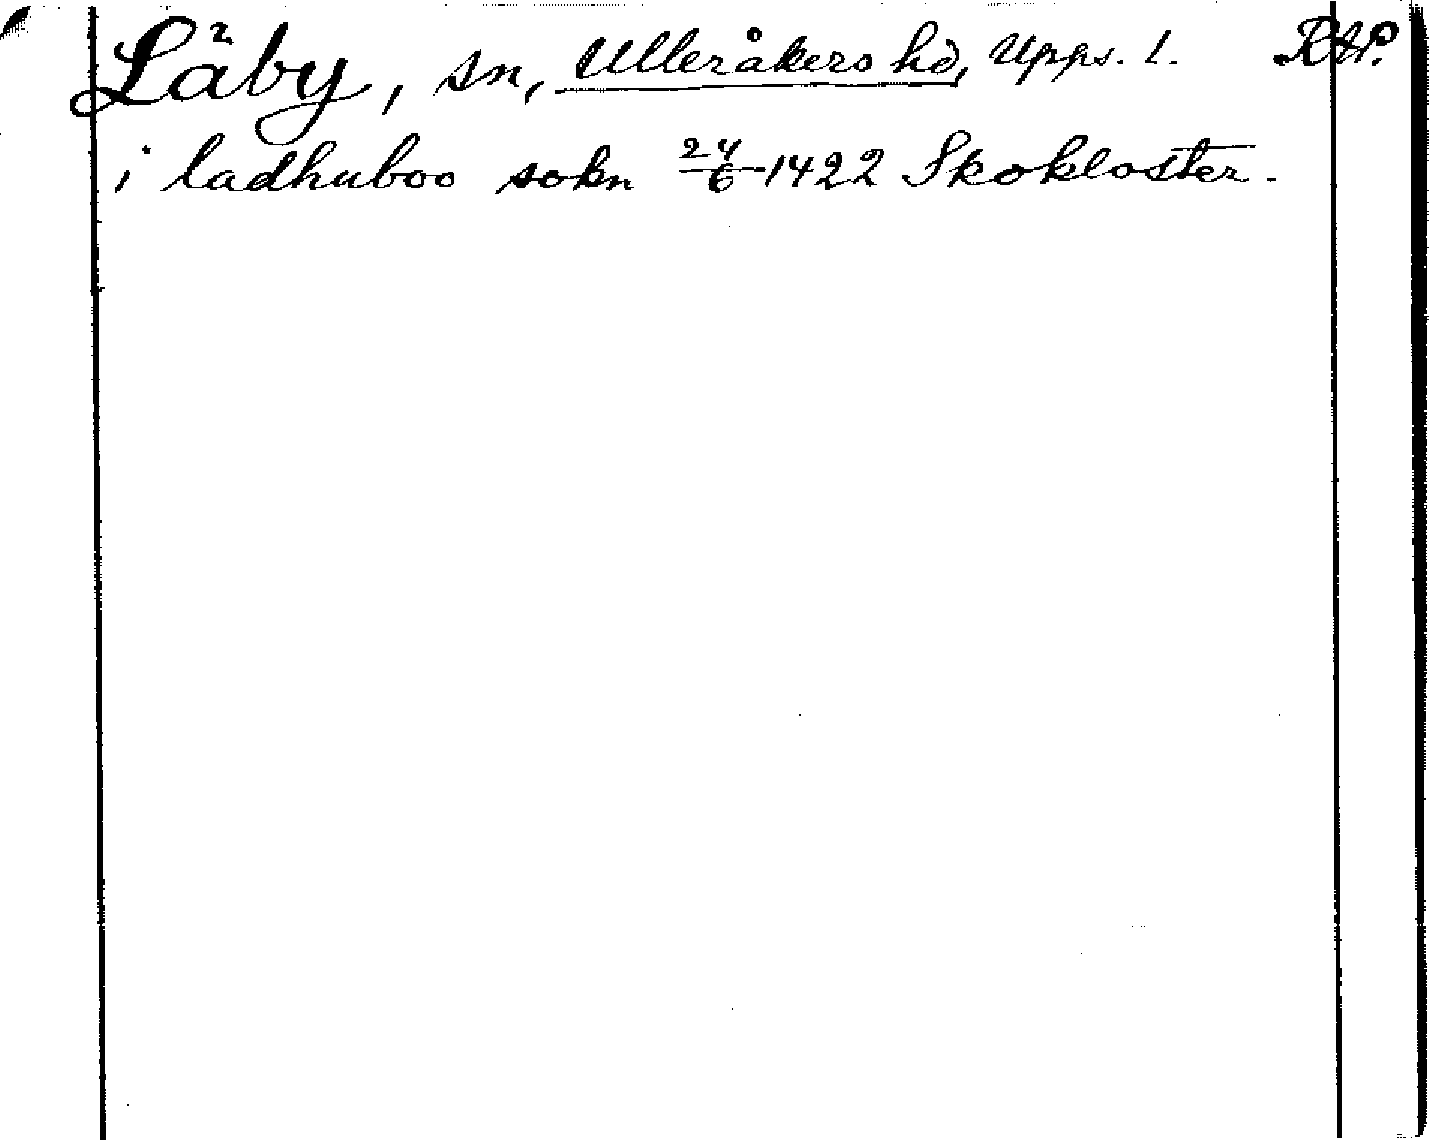 Läby, sn, Ulleråkers hd, Upps. l. RAP.
i ladhuboo sokn 24/6 1422 Skokloster.